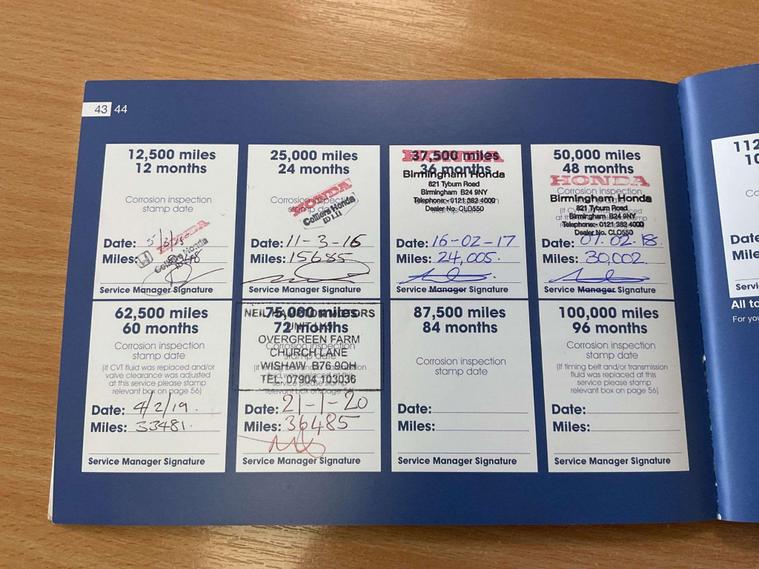 43 44
12,500 miles
12 months
Corrosion inspection
stamp date
HONDA
Colliers Honda
Date:
Miles:
Service Manager Signature
25,000 miles
24 months
Corrosion inspection
stamp date
HONDA
Colliers Honda
Date: 11-3-16
Miles: 15685
Service Manager Signature
37,500 miles
36 months
HONDA
Birmingham Honda
821 Tyburn Road
Birmingham B24 9NY
Telephone:- 0121 382 4000
Dealer No. CLO550
Date: 16-02-17
Miles: 24,005.
Service Manager Signature
50,000 miles
48 months
HONDA
Corrosion inspection
Birmingham Honda
821 Tyburn Road
Birmingham B24 9NY
Telephone:- 0121 382 4000
Dealer No. CLO550
Date: 07.02.18.
Miles: 30,002.
Service Manager Signature
62,500 miles
60 months
Corrosion inspection
stamp date
(If CVT fluid was replaced and/or
valve clearance was adjusted
at this service please stamp
relevant box on page 56)
Date: 4/2/19.
Miles: 33481.
Service Manager Signature
75,000 miles
72 months
OVERGREEN FARM
CHURCH LANE
WISHAW B76 9QH
TEL: 07904 103036
relevant box on page 56)
Date: 21-1-20
Miles: 36485
Service Manager Signature
87,500 miles
84 months
Corrosion inspection
stamp date
Date:
Miles:
Service Manager Signature
100,000 miles
96 months
Corrosion inspection
stamp date
(If timing belt and/or transmission
fluid was replaced at this service
please stamp relevant
box on page 56)
Date:
Miles:
Service Manager Signature
112
10
Co
Date
Mile
Servi
All to
For you